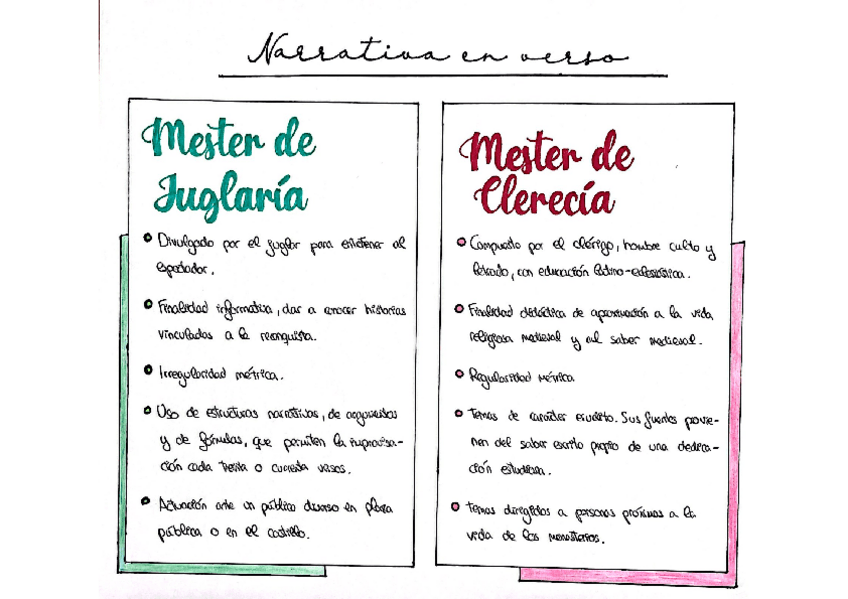 Narrativa en verso
Mester de
Juglaría
Divulgado por el juglar para entretener al
espectador.
Finalidad informativa, dar a conocer historias
vinculadas a la reconquista.
Irregularidad métrica.
Uso de estructuras narrativas, de
y de fórmulas, que permiten la improvisa-
ción cada treinta o cuarenta versos.
Actuación ante un público diverso en plaza
pública o en el castillo.
Mester de
Clerecía
Compuesto por el clérigo, hombre culto y
letrado, con educación latino-eclesiástica.
Finalidad didáctica de aproximación a la vida
religiosa medieval y al saber medieval.
Regularidad métrica
Temas de carácter erudito. Sus fuentes provie-
nen del saber escrito propio de una dedica-
ción estudiosa.
Temas dirigidos a personas próximas a la
vida de los monasterios.